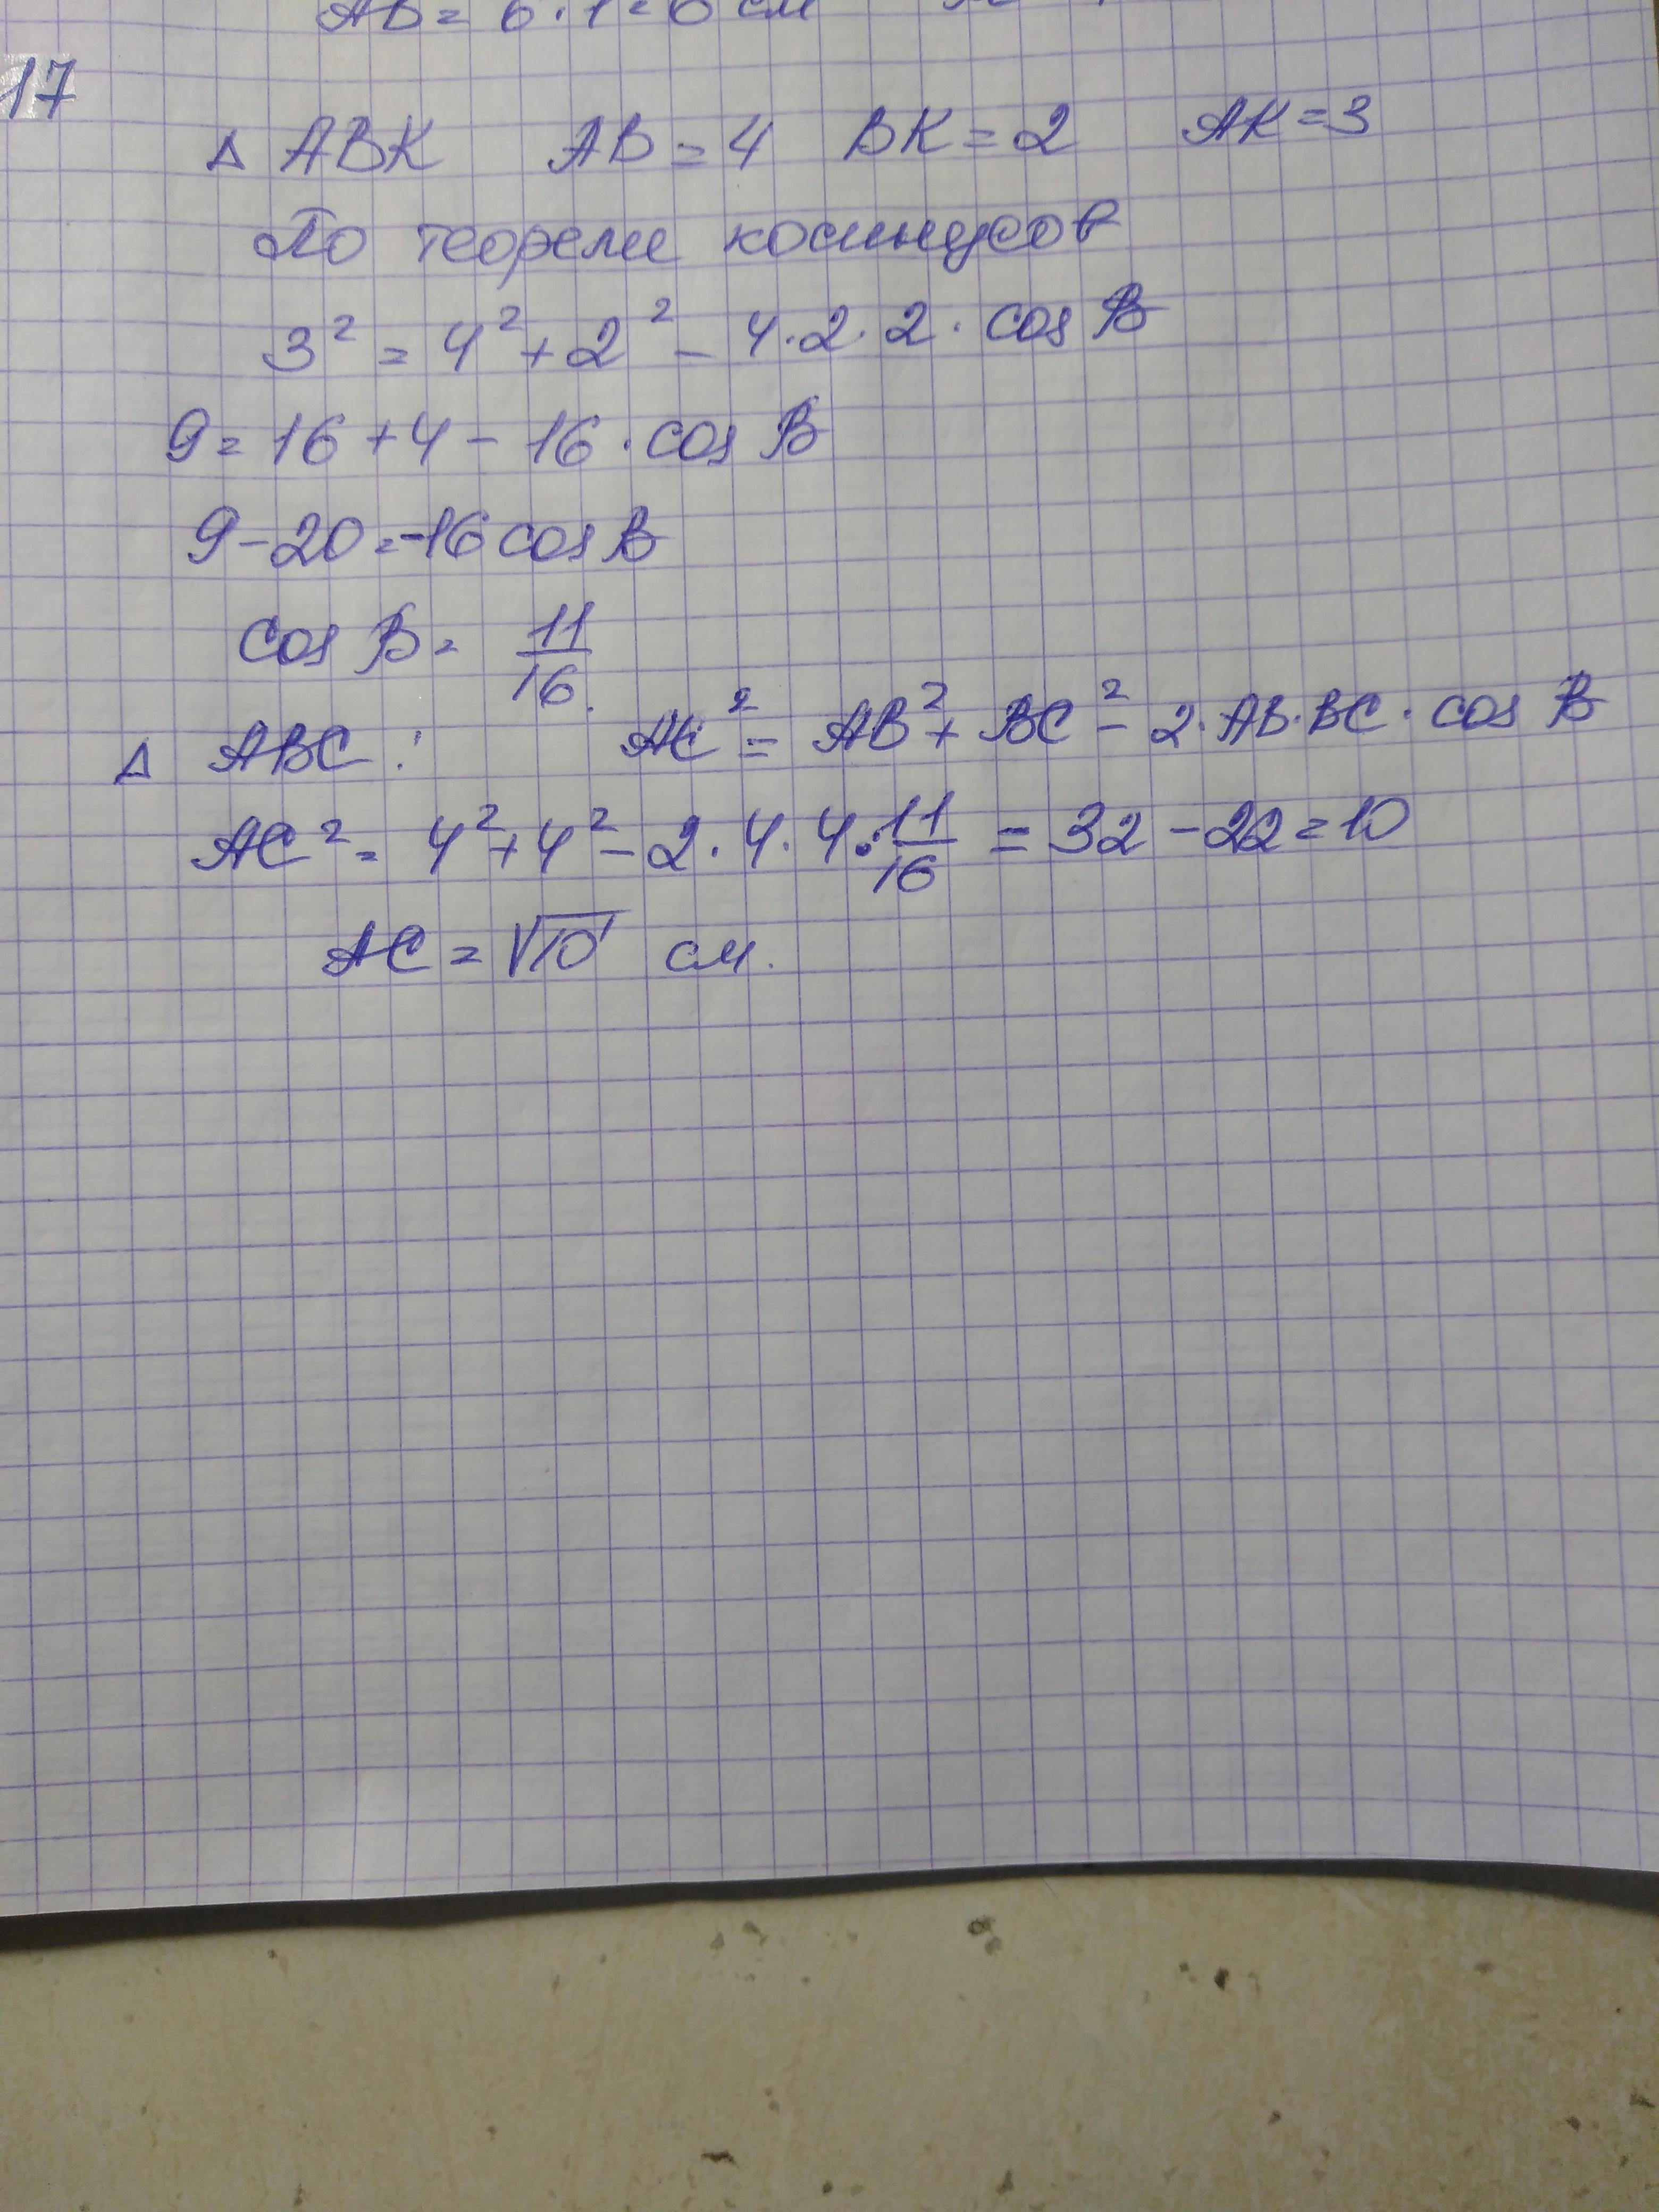 AB = 6 · 1 = 6 см
17
Δ ABK AB = 4 BK = 2 AK = 3
По теореме косинусов
3² = 4² + 2² - 4 · 2 · 2 · cos B
9 = 16 + 4 - 16 · cos B
9 - 20 = -16 cos B
cos B = 11/16.
Δ ABC : AC² = AB² + BC² - 2 · AB · BC · cos B
AC² = 4² + 4² - 2 · 4 · 4 · 11/16 = 32 - 22 = 10
AC = √10 см.